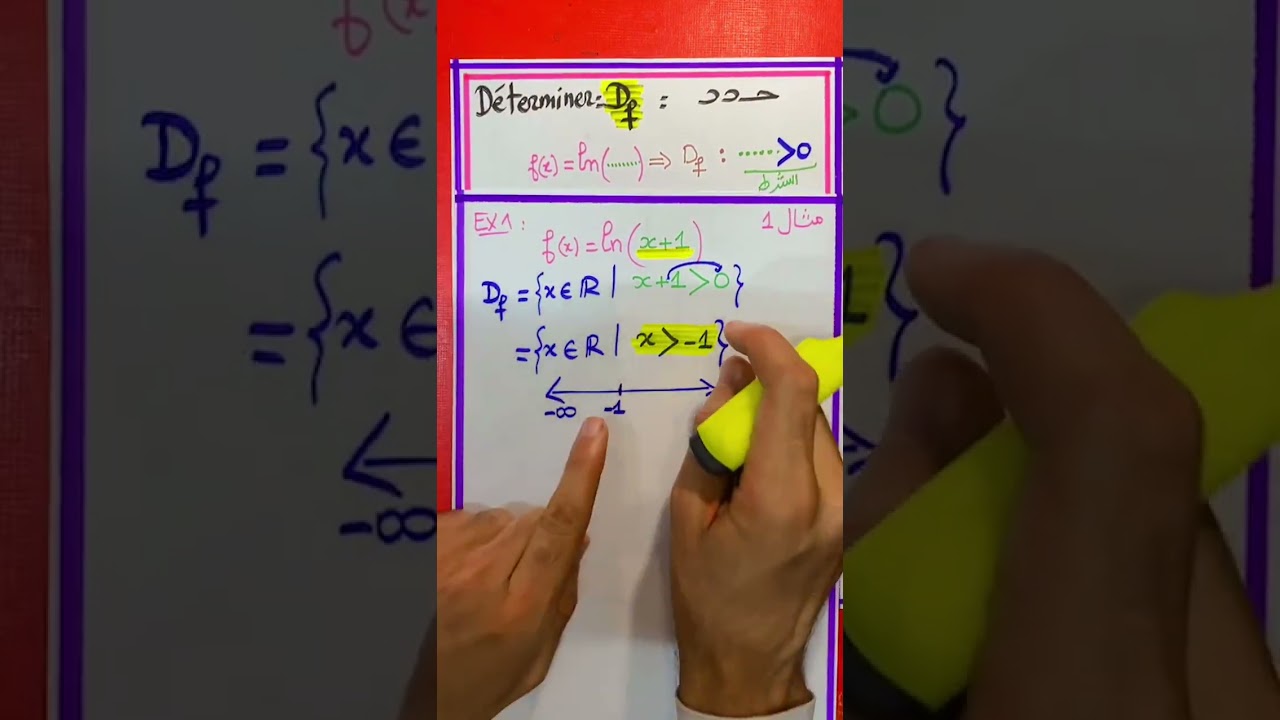 Déterminer: D_f : حدد
f(x) = ln(........) ⇒ D_f : ...... > 0
الشرط
EX1 : مثال 1
f(x) = ln(x+1)
D_f = {x ∈ ℝ | x+1 > 0}
= {x ∈ ℝ | x > -1}
-∞ -1